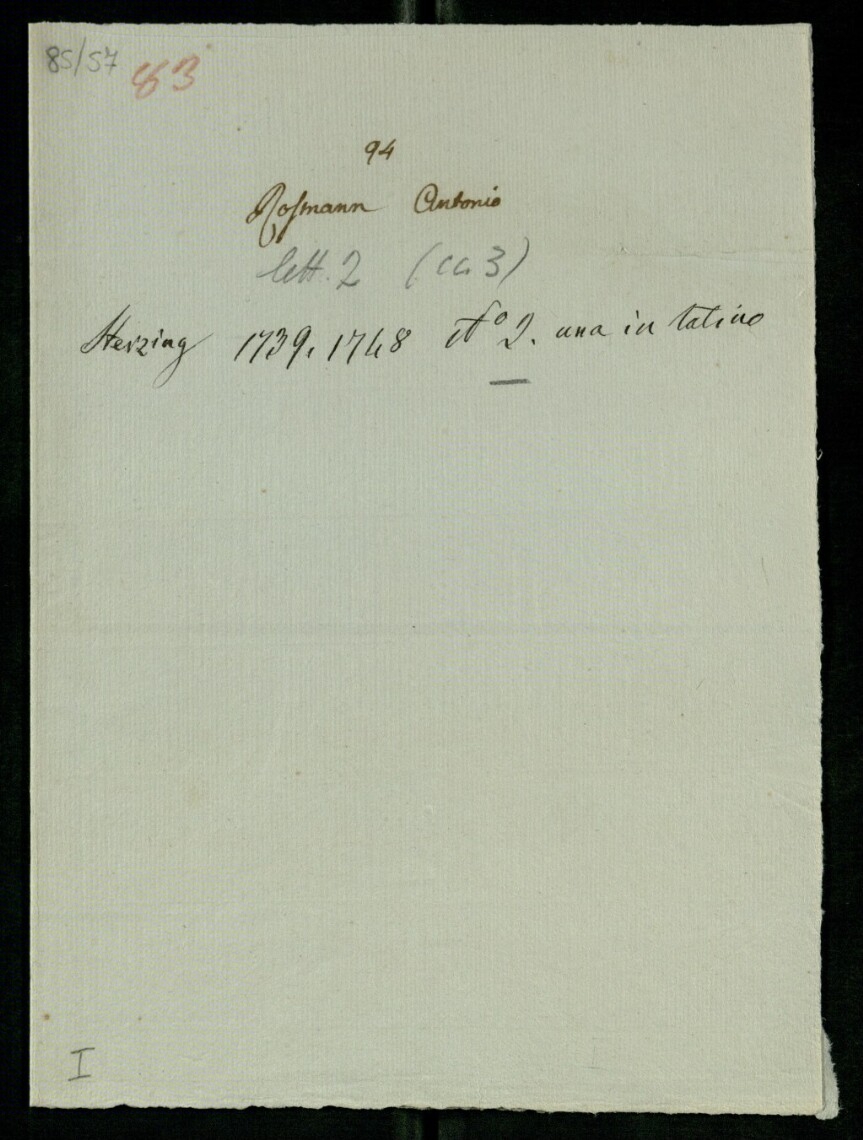 85/57 83
94
Rosmann Antonio
lett. 2 (cc. 3)
Sterzing 1739. 1748 No 2. una in latino
I